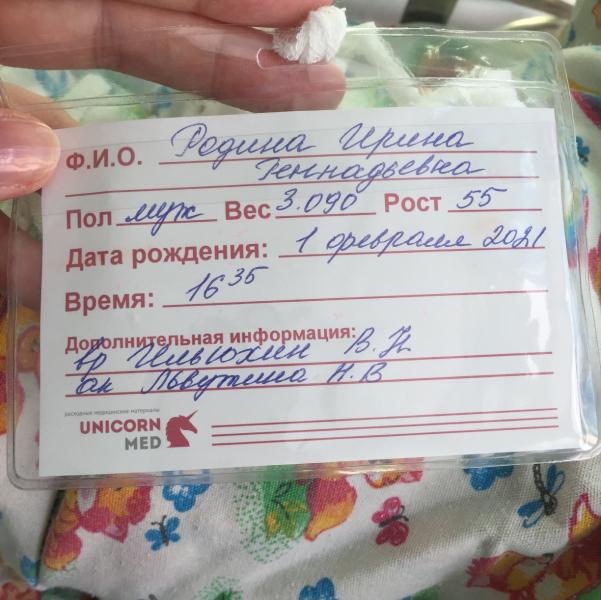 Ф.И.О. Родина Ирина
Геннадьевна
Пол муж Вес 3.090 Рост 55
Дата рождения: 1 февраля 2021
Время: 16 35
Дополнительная информация:
вр Ильюхин В.Н.
ак Львутина Н.В
расходные медицинские материалы
UNICORN
MED